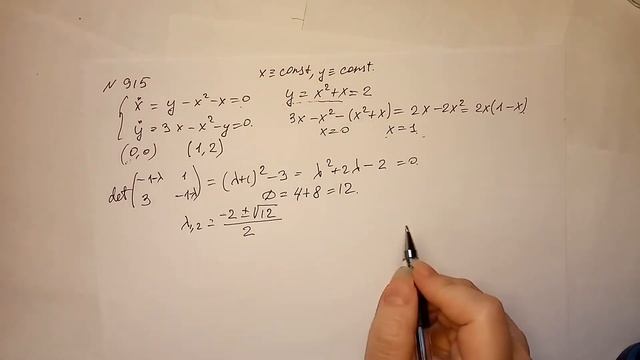 N 915
x ≡ const, y ≡ const.
{ ẋ = y - x² - x = 0
y = x² + x = 2
ẏ = 3x - x² - y = 0.
3x - x² - (x² + x) = 2x - 2x² = 2x(1-x)
x=0 x=1
(0,0) (1,2)
det ( -1-λ 1
3 -1-λ ) = (λ+1)² - 3 = λ² + 2λ - 2 = 0.
D = 4 + 8 = 12.
λ₁,₂ = (-2 ± √12) / 2